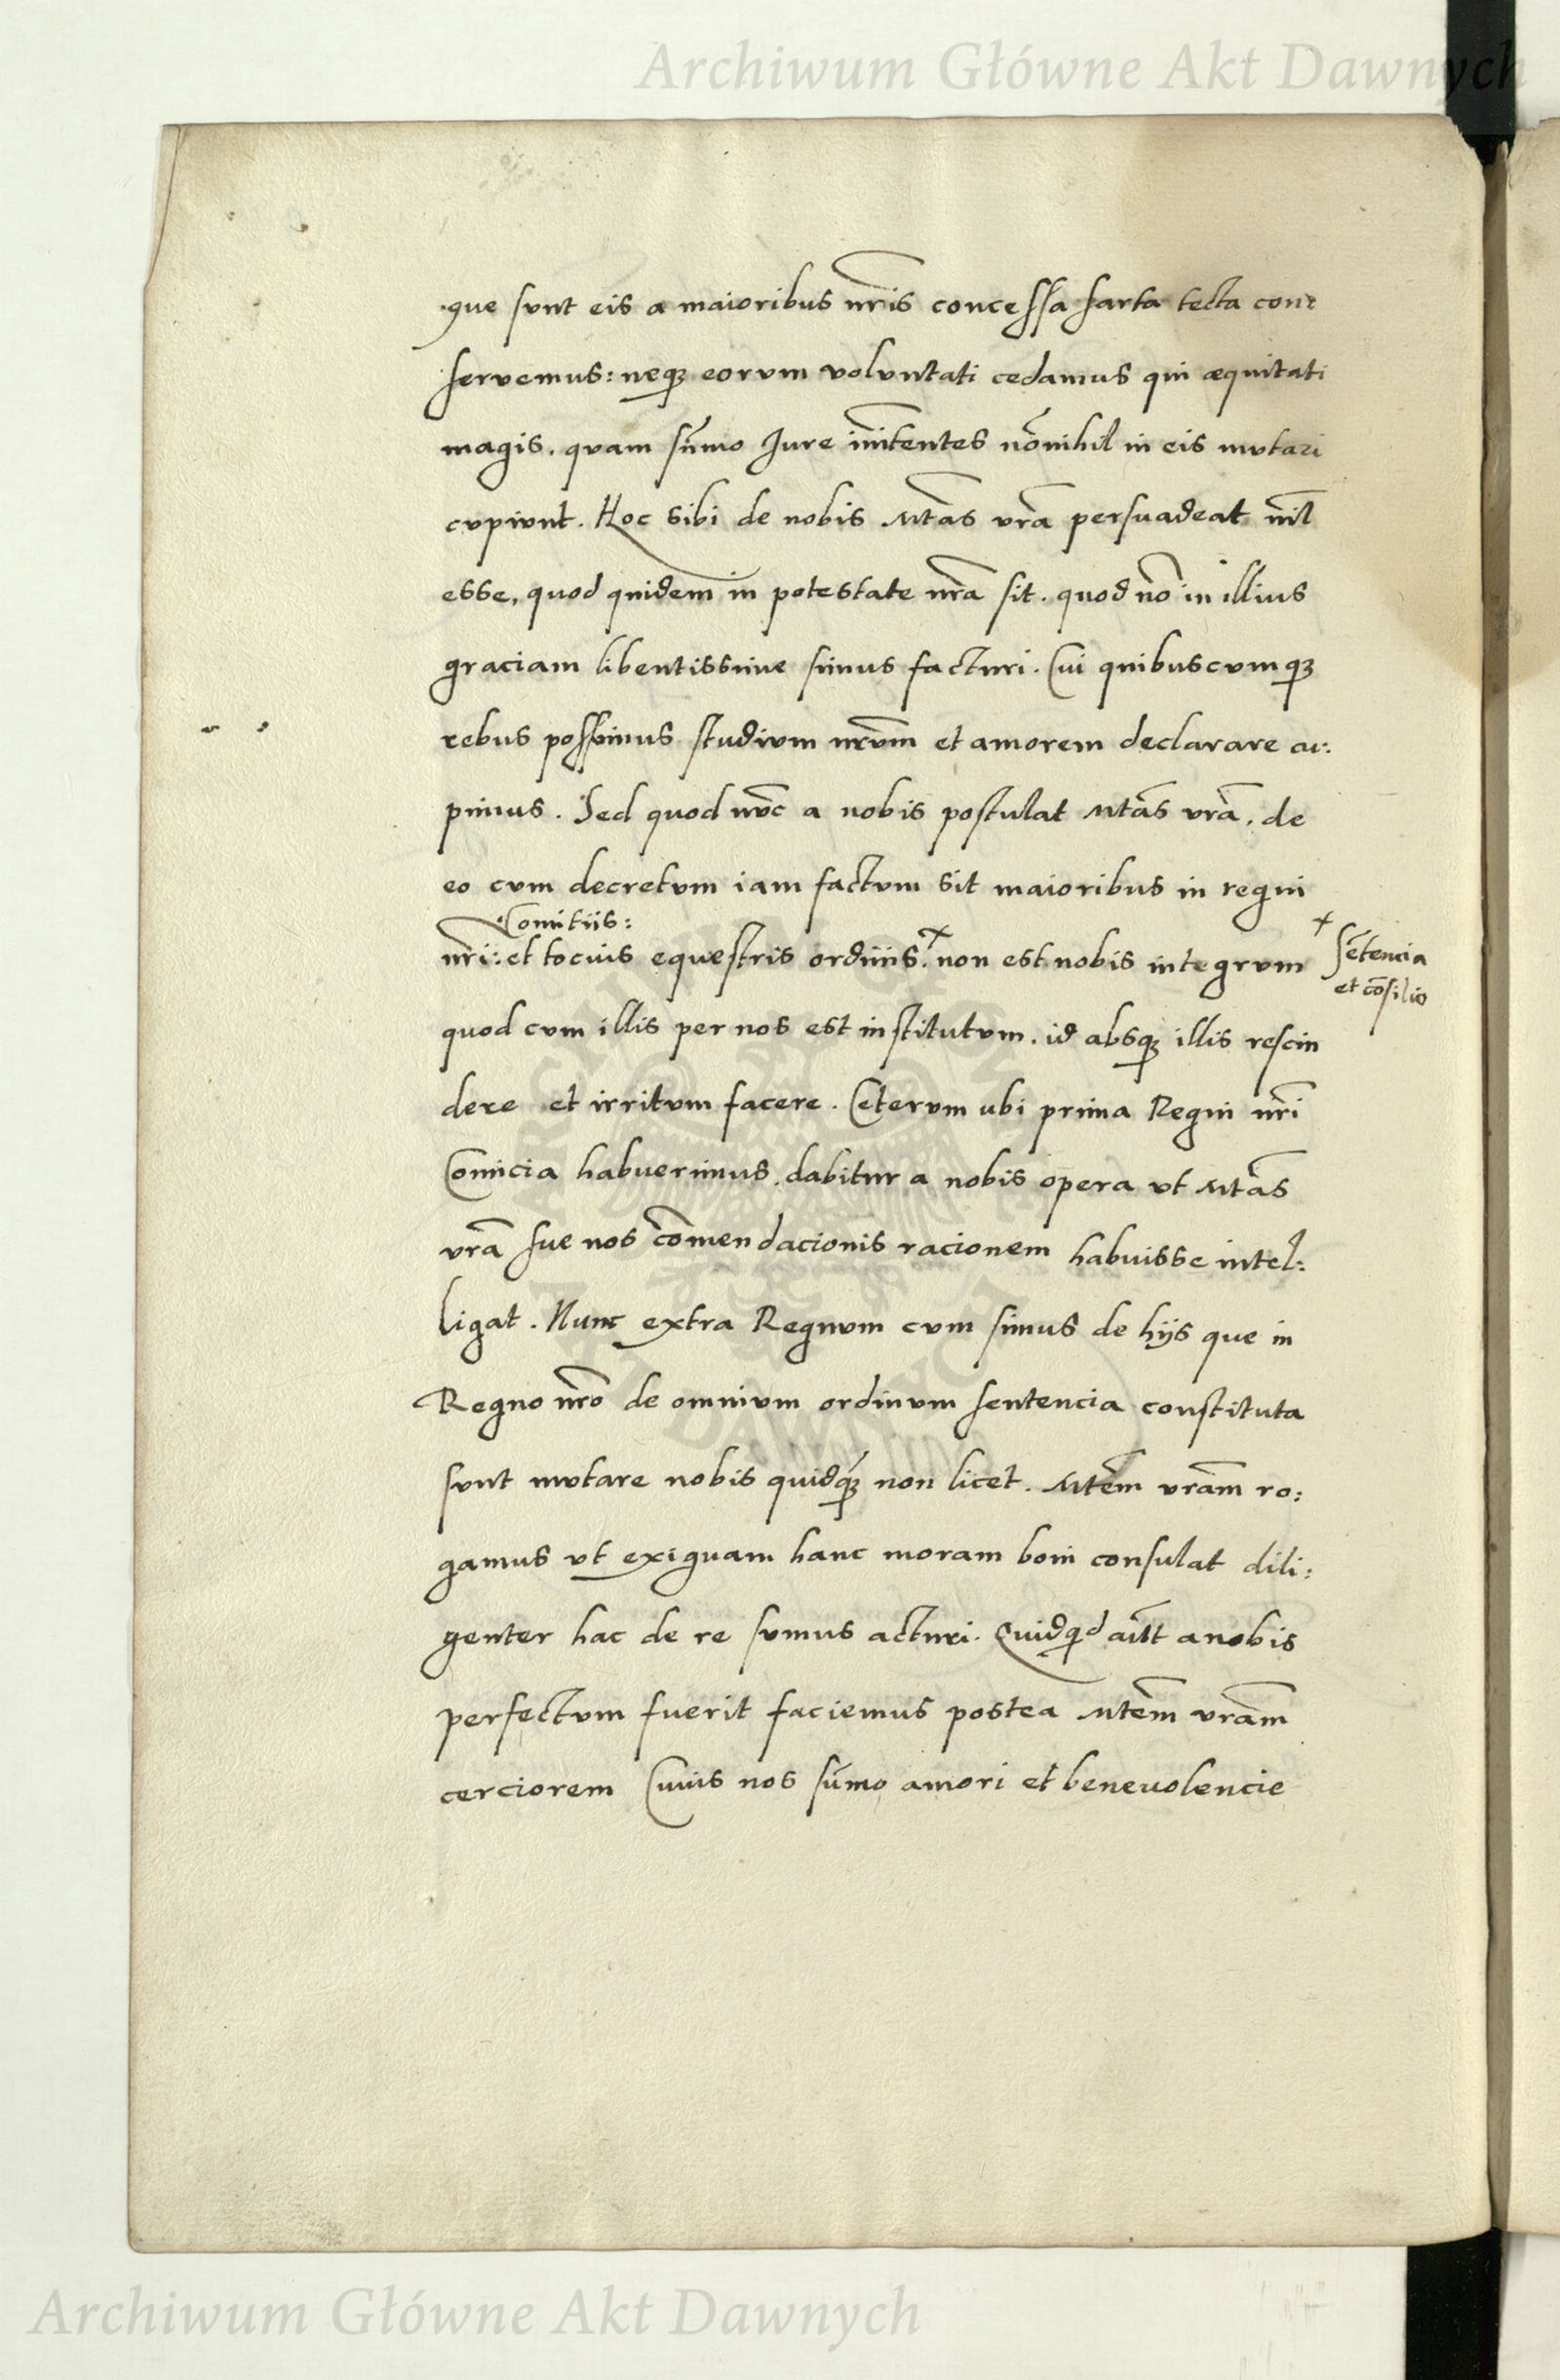 Archiwum Główne Akt Dawnych
que sunt eis a maioribus nr̃is concessa sarta tecta con:
servemus: neqꝫ eorum voluntati cedamus qui æquitati
magis. quam sum̃o Jure in̄itentes nōnihil in eis mutari
cupiunt. Hoc sibi de nobis Mtãs vrã persuadeat nĩl
esse, quod quidem in potestate nrã sit. quod nõ in illius
graciam libentissime simus facturi. Cui quibuscumqꝫ
rebus possimus studium nrũm et amorem declarare cu:
pimus. Sed quod nũc a nobis postulat Mtãs vrã. de
eo cum decretum iam factum sit maioribus in regni
Comitiis:
nrĩ: et tocius equestris ordinis.+ non est nobis integrum
+ Sẽtencia
et cõsilio
quod cum illis per nos est institutum. id absqꝫ illis rescin
dere et irritum facere. Ceterum ubi prima Regni nrĩ
Comicia habuerimus. dabitur a nobis opera ut Mtãs
vrã sue nos cõmendacionis racionem habuisse intel:
ligat. Nunc extra Regnum cum simus de hijs que in
Regno nrõ de omnium ordinum sentencia constituta
sunt mutare nobis quidqꝫ̃ non licet. Mtẽm vrãm ro:
gamus ut exiguam hanc moram boni consulat dili:
genter hac de re sumus acturi. Quidqd aũt a nobis
perfectum fuerit faciemus postea Mtẽm vrãm
cerciorem Cuius nos sũmo amori et benevolencie
Archiwum Główne Akt Dawnych